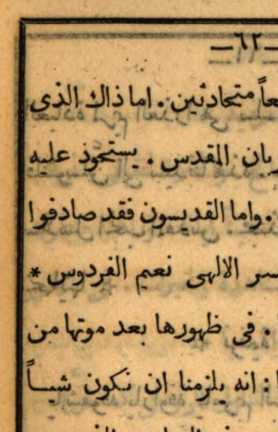 —٦٢—
عاً متحادثين. اما ذاك الذى
ربان المقدس. يستحوذ عليه
. واما القديسون فقد صادفوا
سر الالهى نعيم الفردوس *
. فى ظهورها بعد موتها من
: انه يلزمنا ان نكون شيـاً